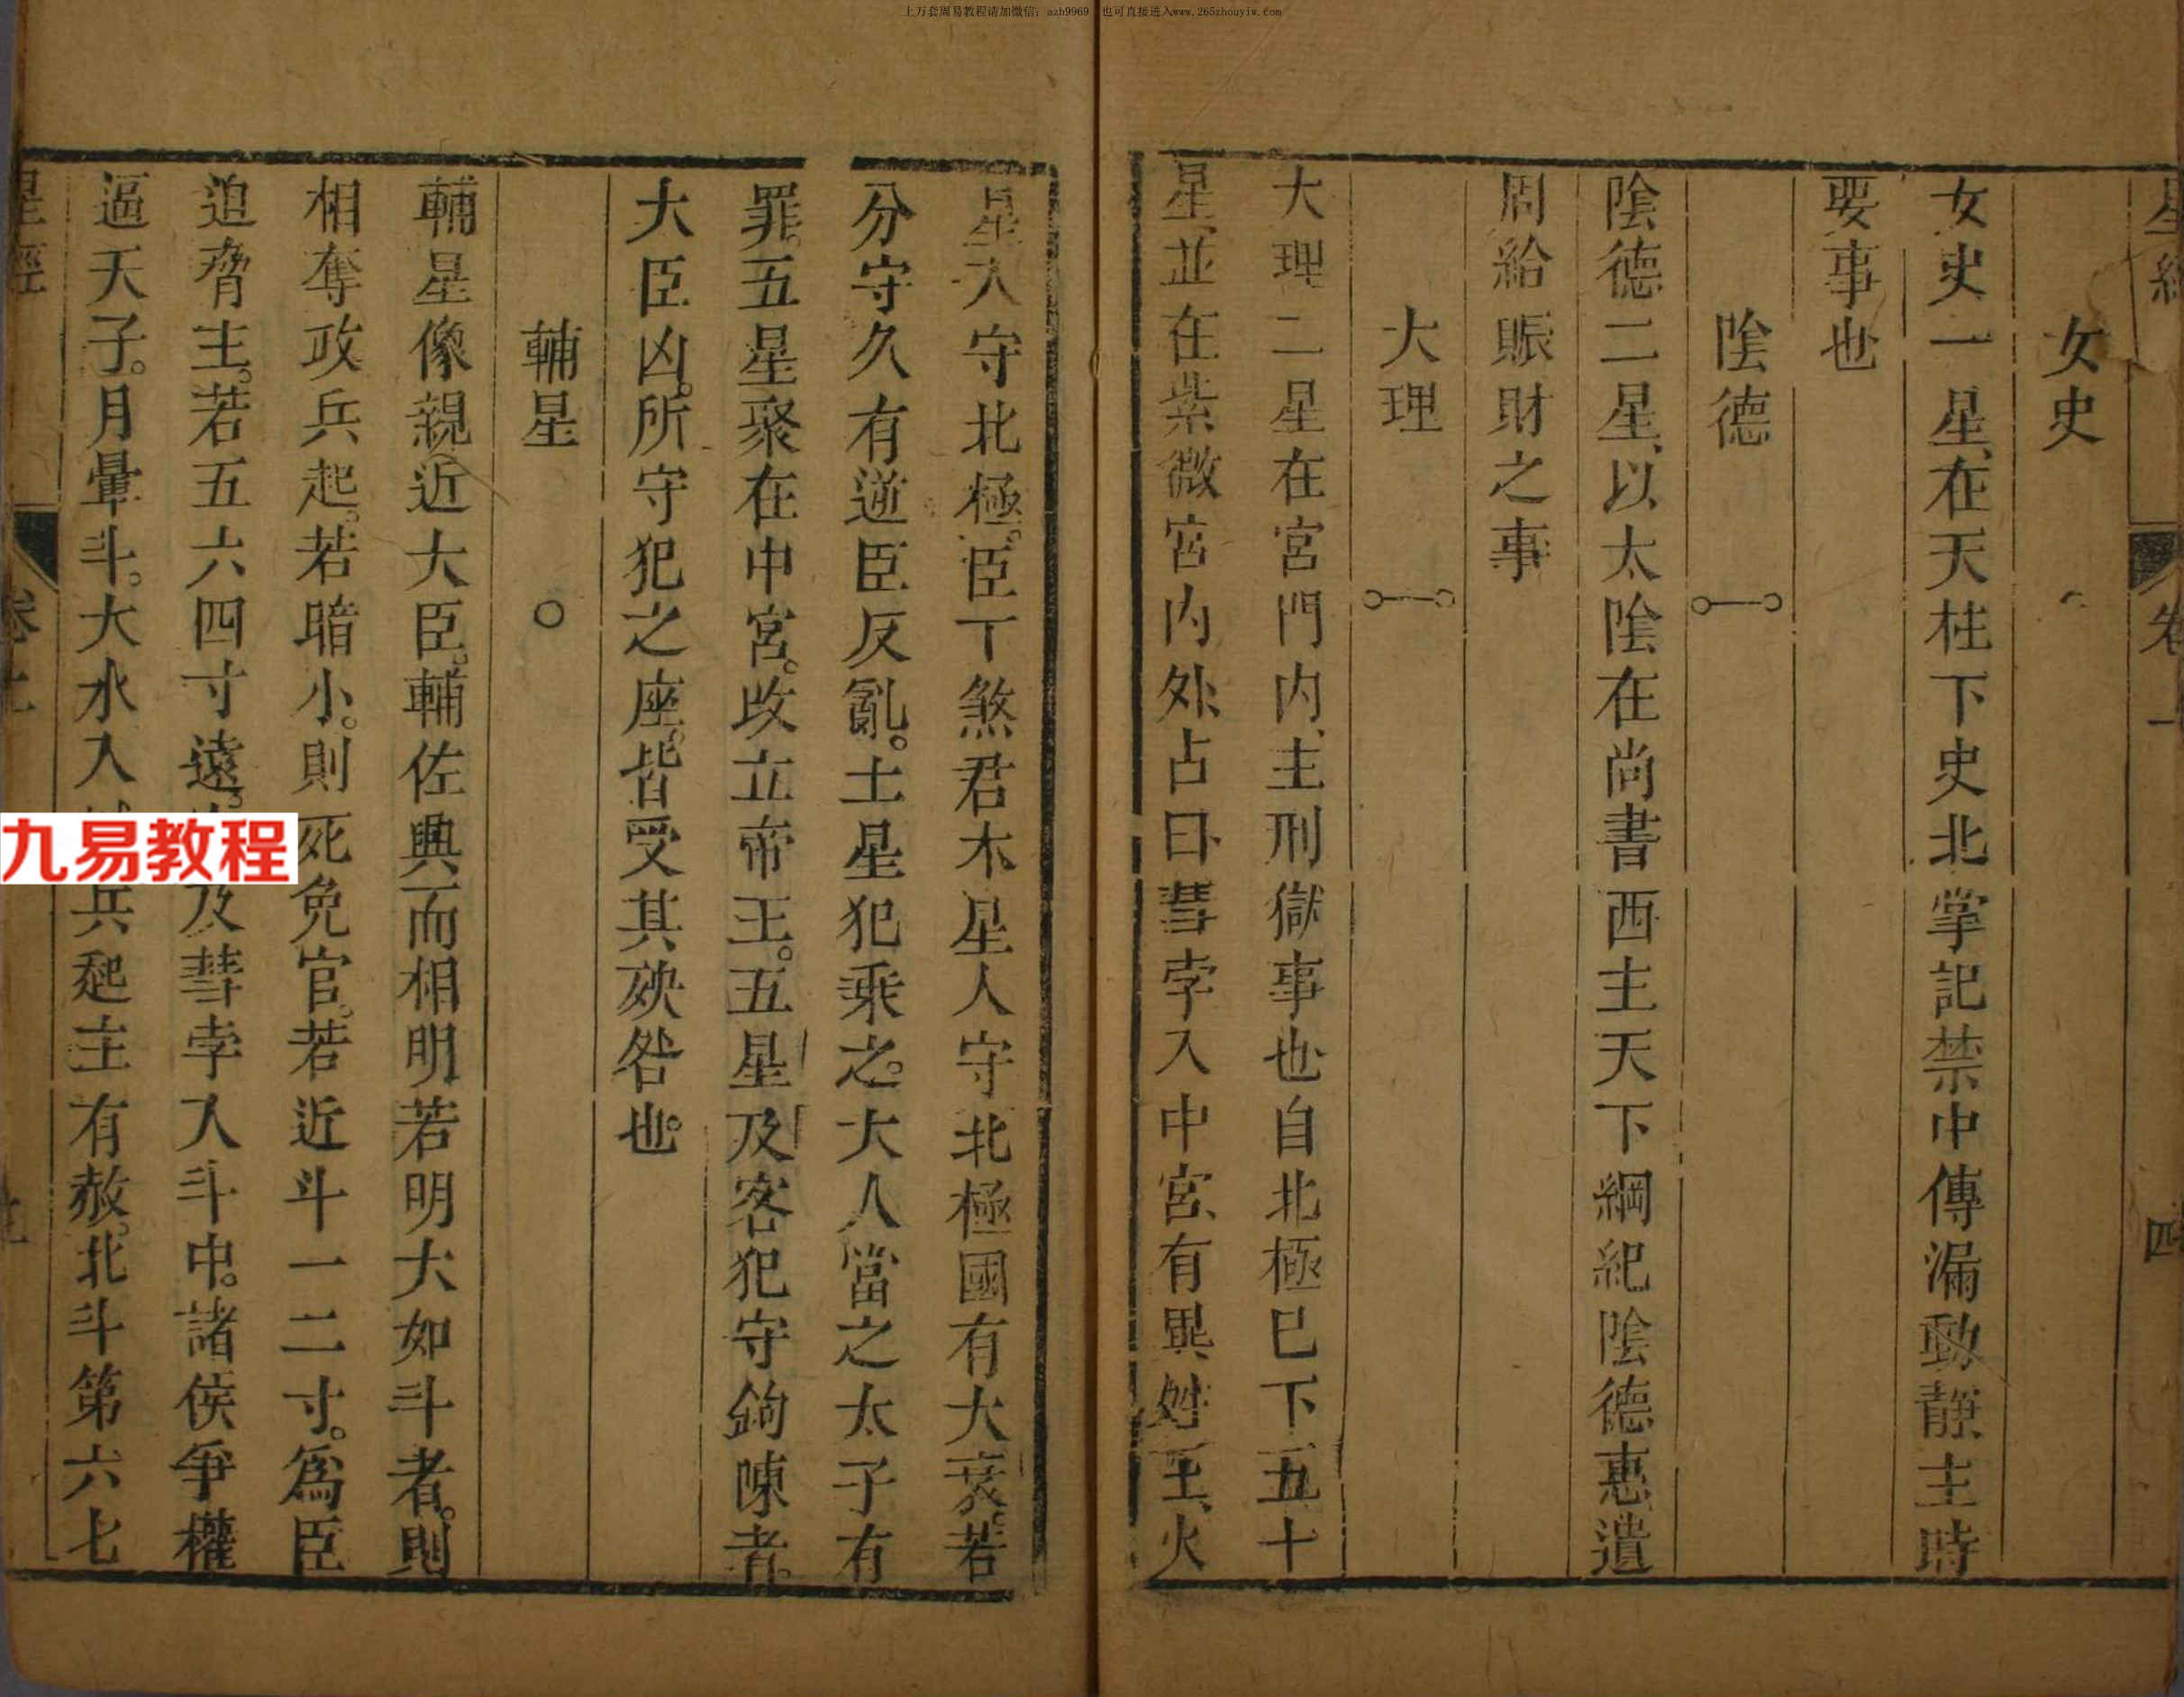 上万套周易教程请加微信：azh9969 也可直接进入www.265zhouyiw.com
星經 卷上 四
女史
女史一星、在天柱下史北掌記禁中傳漏動靜主時
要事也
陰德
陰德二星、以太陰在尚書西主天下綱紀陰德惠遺
周給賑財之事
大理
大理二星在宮門內、主刑獄事也自北極巳下五十
星、並在紫微宮內外占曰彗孛入中宮、有異姓王、火
星入守北極。臣下煞君木星入守北極國有大衰。若
分守久有逆臣反亂。土星犯乘之。大人當之太子有
罪。五星聚在中宮。改立帝王。五星及客犯守鉤陳者。
大臣凶。所守犯之座。皆受其殃咎也。
輔星 〇
輔星像親近大臣。輔佐興而相明若明大如斗者。則
相奪政兵起。若暗小。則死免官。若近斗一二寸。為臣
迫脅主。若五六四寸遠。及彗孛入斗中。諸侯爭權
逼天子。月暈斗。大水入兵起主有赦。北斗第六七
星經 卷上
九易教程